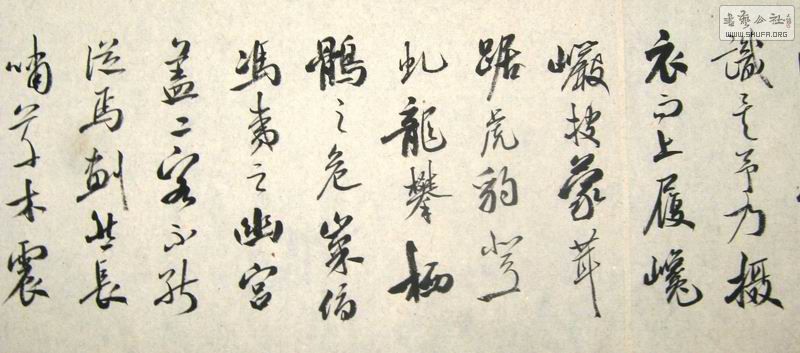 識矣予乃攝
衣而上履巉
巖披蒙茸
踞虎豹登
虬龍攀栖
鶻之危巢俯
馮夷之幽宮
蓋二客不能
從焉劃然長
嘯草木震
書藝公社
WWW.SHUFA.ORG